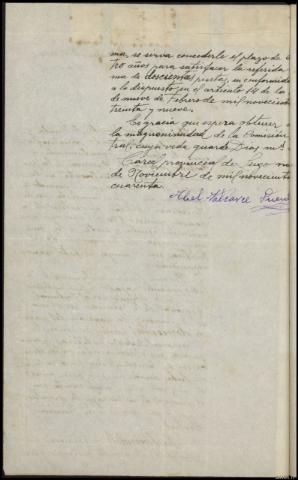 ma, se sirva concederle el plazo de cua
tro años para satisfacer la referida
ma de doscientas pesetas, en conformida
a lo dispuesto en el artículo 14 de la
de nueve de Febrero de mil novecien
treinta y nueve.
Es gracia que espera obtener
la magnanimidad de la Comisión
tral, cuya vida guarde Dios m.ª
provincia de Lugo
de Noviembre de mil novecientos
cuarenta.
Abel Valcarce